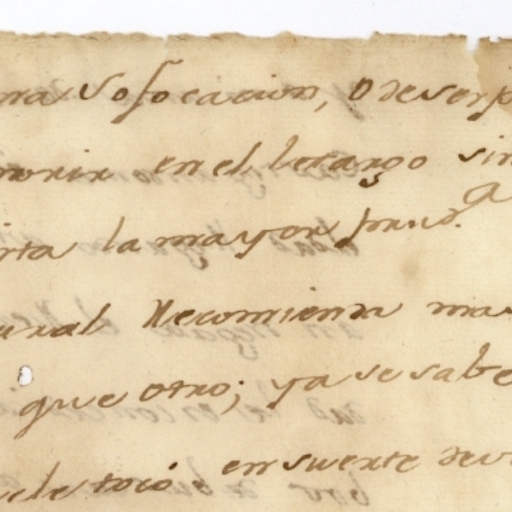 na Sofocacion, o deserp
morir en el letargo sin
rta la mayor prud.a
ural Recomienda mas
que otro; ya se sabe
ele tocó en suerte